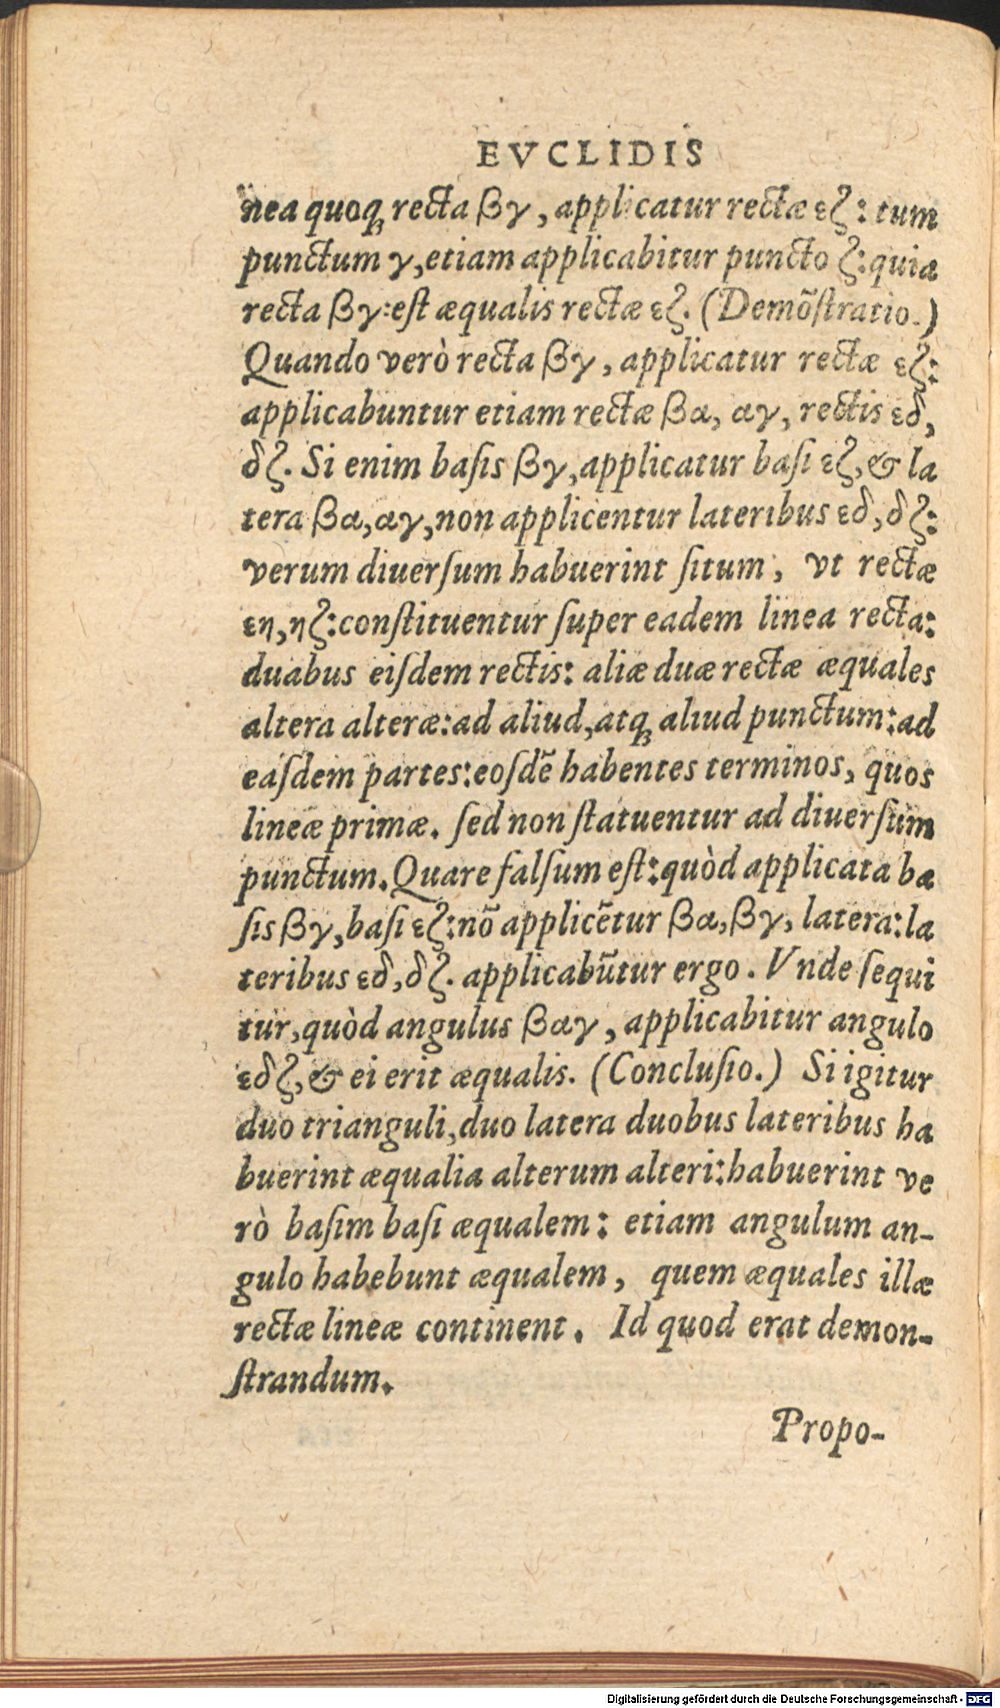 EVCLIDIS
nea quoqꝫ recta βγ, applicatur rectæ εζ: tum
punctum γ, etiam applicabitur puncto ζ: quia
recta βγ: est æqualis rectæ εζ. (Demõſtratio.)
Quando verò recta βγ, applicatur rectæ εζ:
applicabuntur etiam rectæ βα, αγ, rectis εδ,
δζ. Si enim baſis βγ, applicatur baſi εζ, & la
tera βα, αγ, non applicentur lateribus εδ, δζ:
verum diuerſum habuerint ſitum, vt rectæ
εη, ηζ: conſtituentur ſuper eadem linea recta:
duabus eiſdem rectis: aliæ duæ rectæ æquales
altera alteræ: ad aliud, atqꝫ aliud punctum: ad
eaſdem partes: eoſdẽ habentes terminos, quos
lineæ primæ. ſed non ſtatuentur ad diuerſum
punctum. Quare falſum eſt: quòd applicata ba
ſis βγ, baſi εζ: nõ applicẽtur βα, βγ, latera: la
teribus εδ, δζ. applicabũtur ergo. Vnde ſequi
tur, quòd angulus βαγ, applicabitur angulo
εδζ, & ei erit æqualis. (Concluſio.) Si igitur
duo trianguli, duo latera duobus lateribus ha
buerint æqualia alterum alteri: habuerint ve
rò baſim baſi æqualem: etiam angulum an-
gulo habebunt æqualem, quem æquales illæ
rectæ lineæ continent. Id quod erat demon-
ſtrandum.
Propo-
Digitalisierung gefördert durch die Deutsche Forschungsgemeinschaft - DFG